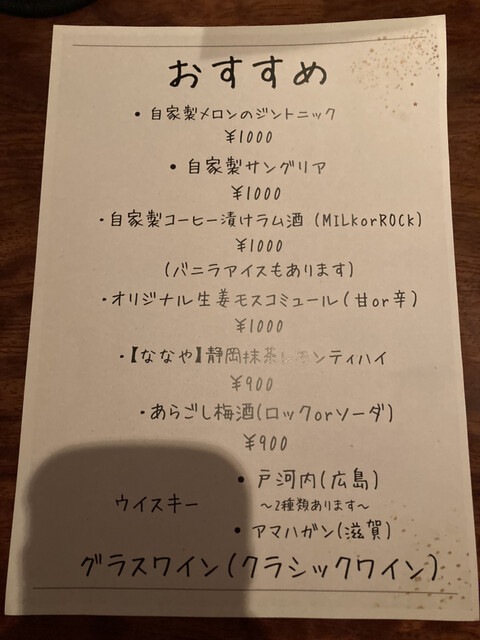 おすすめ
・自家製メロンのジントニック
¥1000
・自家製サングリア
¥1000
・自家製コーヒー漬けラム酒 (MILKorROCK)
¥1000
(バニラアイスもあります)
・オリジナル生姜モスコミュール(甘or辛)
¥1000
・【ななや】静岡抹茶レモンティハイ
¥900
・あらごし梅酒(ロックorソーダ)
¥900
・戸河内(広島)
ウイスキー 〜2種類あります〜
・アマハガン(滋賀)
グラスワイン(クラシックワイン)